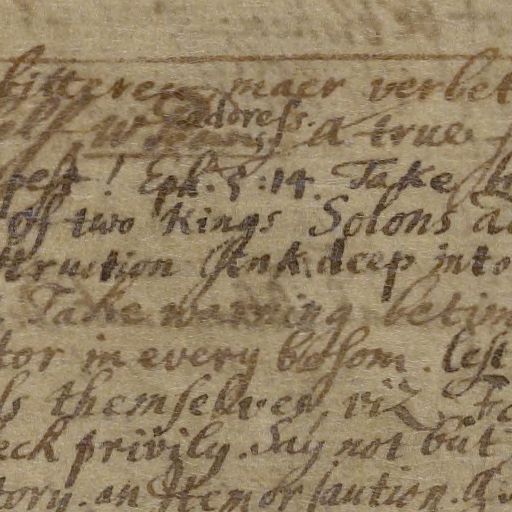 bitteren maer verbet
address.
A true
pest! Eph. 5.14. Take
of two Kings Solons
struction sink deep into
Take warning betim
tor in every bosom. lest
ls themselves, viz
eck privily. Say not but
tory. an Item or caution. A